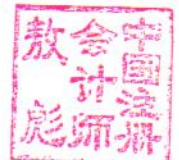 中国注册
会计师
敖彪